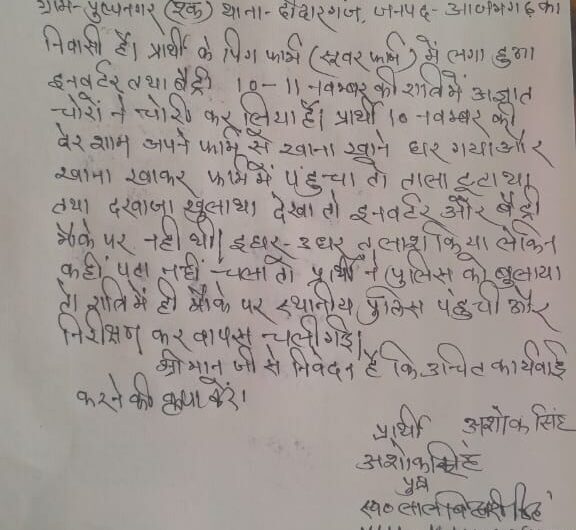 ग्राम- पुष्पनगर (श्क) थाना- दीदारगंज, जनपद- आजमगढ़ का
निवासी है। प्रार्थी के पिग फार्म (सूवर फार्म) में लगा हुआ
इनवर्टर तथा बैट्री 10-11 नवम्बर की रात्रि में अज्ञात
चोरों ने चोरी कर लिया है। प्रार्थी 10 नवम्बर को
देर शाम अपने फार्म से खाना खाने घर गया और
खाना खाकर फार्म में पहुंचा तो ताला टूटा था
तथा दरवाजा खुला था देखा तो इनवर्टर और बैट्री
मौके पर नही थी। इधर-उधर तलाश किया लेकिन
कहीं पता नहीं चला तो प्रार्थी ने पुलिस को बुलाया
तो रात्रि में ही मौके पर स्थानीय पुलिस पहुंची और
निरीक्षण कर वापस चली गई।
श्री मान् जी से निवेदन है कि उचित कार्यवाई
करने की कृपा करें।
प्रार्थी अशोक सिंह
अशोक सिंह
पुत्र
स्व० लाल बिहारी सिंह